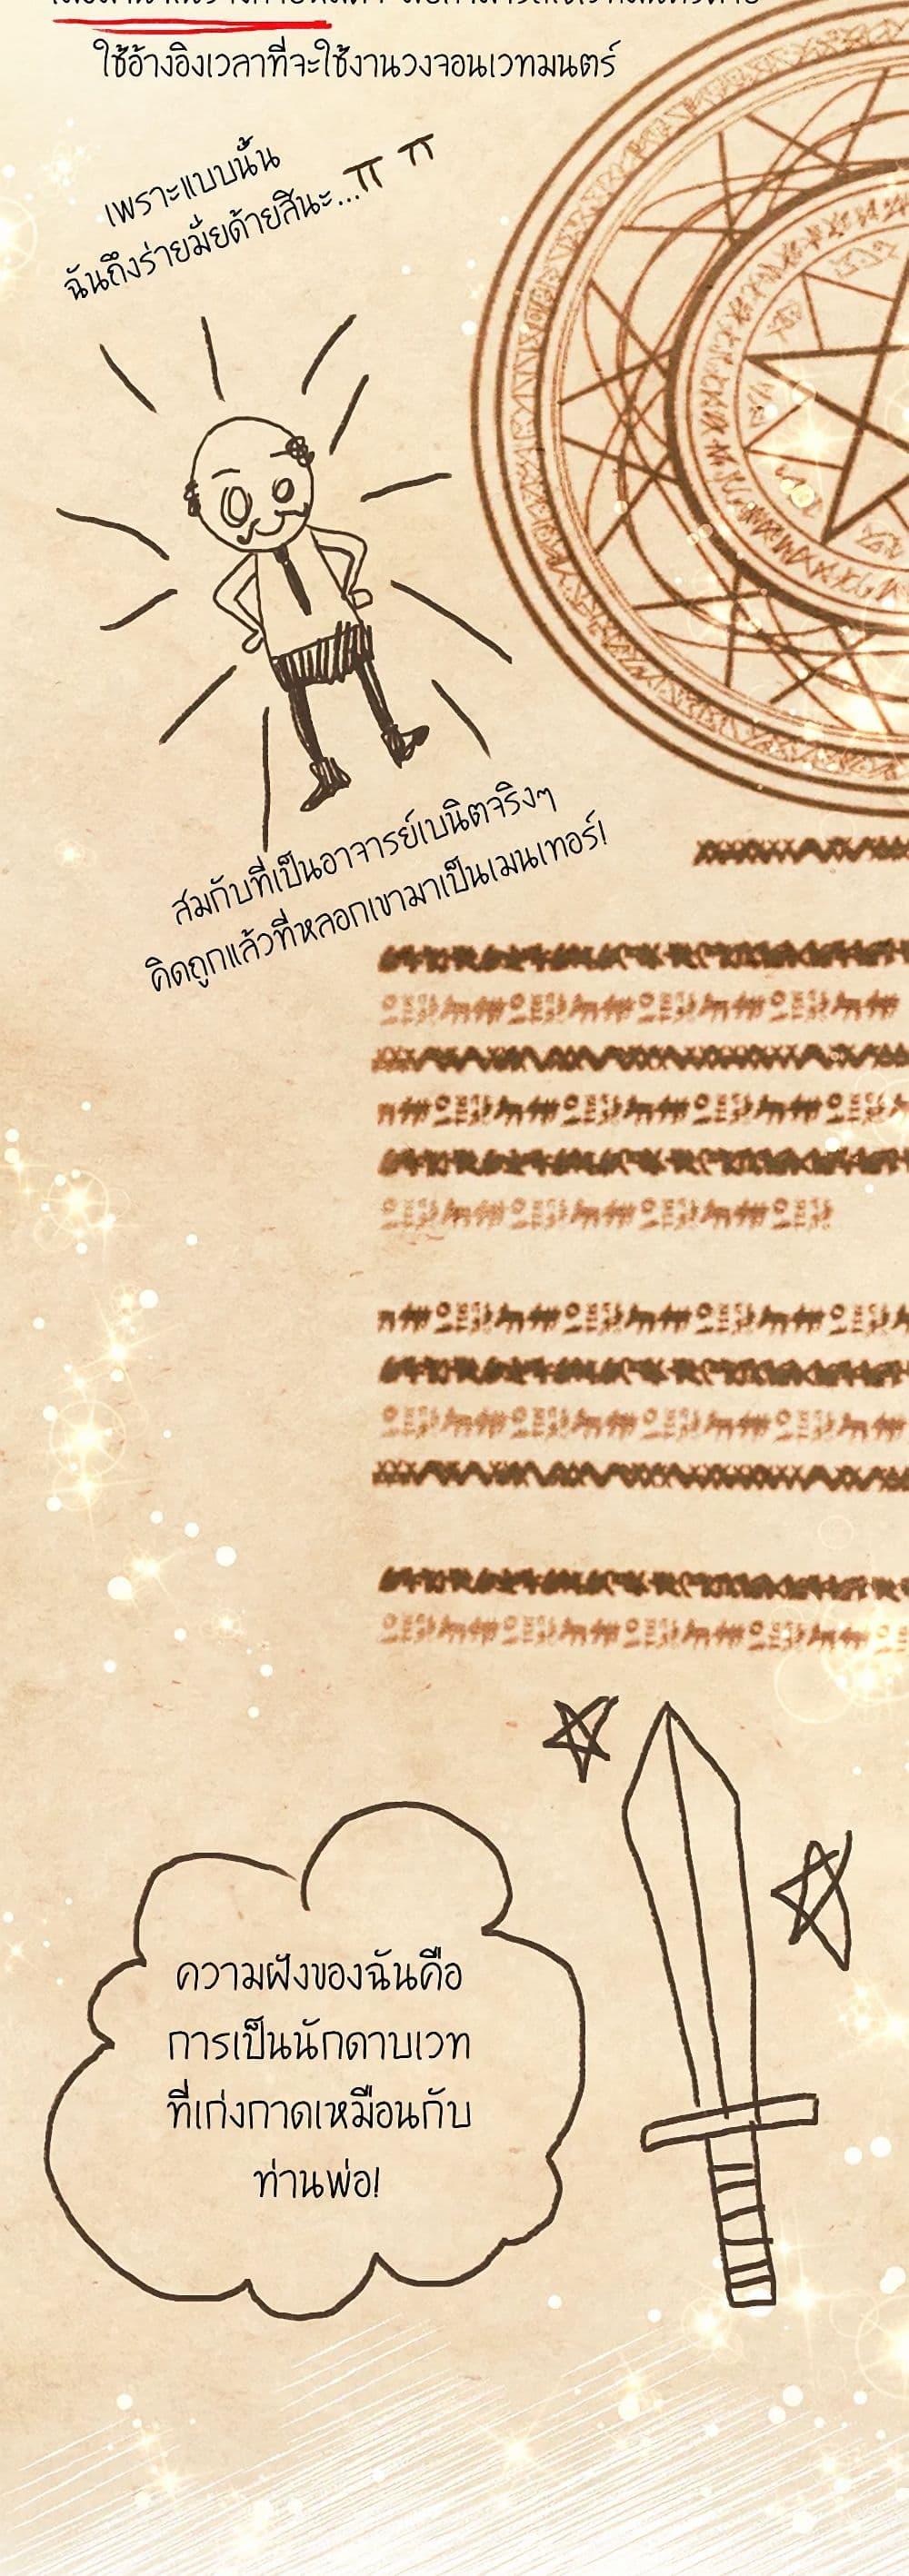 ใช้อ้างอิงเวลาที่จะใช้งานวงจอนเวทมนตร์
เพราะแบบนั้น
ฉันถึงร่ายมั่ยด้ายสีนะ...ㅠ ㅠ
สมกับที่เป็นอาจารย์เบนิตจริงๆ
คิดถูกแล้วที่หลอกเขามาเป็นเมนเทอร์!
ความฝังของฉันคือ
การเป็นนักดาบเวท
ที่เก่งกาดเหมือนกับ
ท่านพ่อ!